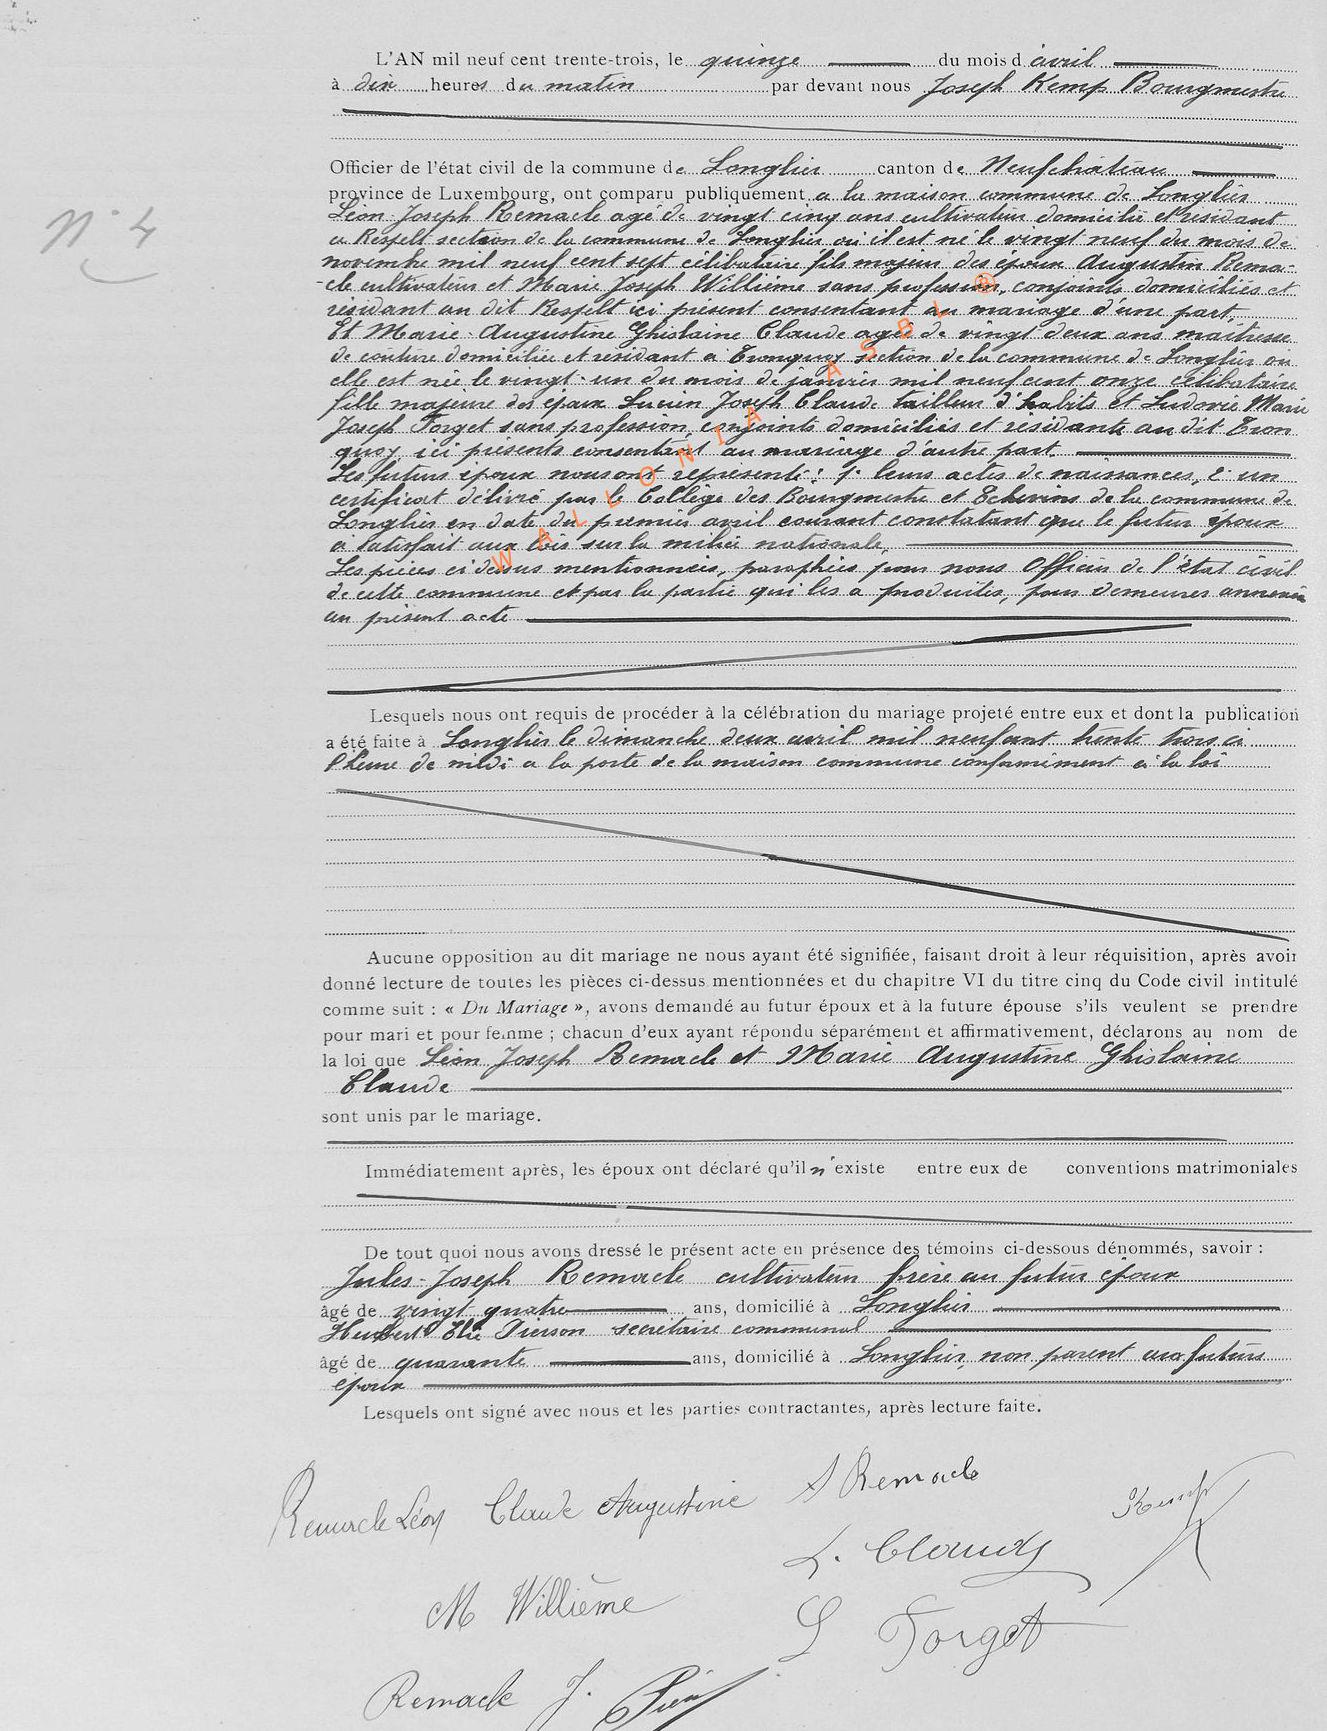 L'AN mil neuf cent trente-trois, le quinze du mois d'avril
à dix heures du matin par devant nous Joseph Kemp Bourgmestre
Officier de l'état civil de la commune de Longlier canton de Neufchâteau
province de Luxembourg, ont comparu publiquement, a la maison commune de Longlier
N° 4
Léon Joseph Remacle agé de vingt cinq ans cultivateur domicilié et résidant
a Respelt section de la commune de Longlier où il est né le vingt neuf du mois de
novembre mil neuf cent sept célibataire fils majeur des époux Augustin Rema-
-cle cultivateur et Marie Joseph Willième sans profession, conjoints domiciliés et
résidant au dit Respelt ici présent consentant au mariage d'une part,
Et Marie-Augustine Ghislaine Claude agée de vingt deux ans maitresse
de couture domiciliée et résidant a Tronquoy section de la commune de Longlier ou
elle est née le vingt-un du mois de janvier mil neuf cent onze célibataire
fille majeure des époux Lucien Joseph Claude tailleur d'habits et Ludovie Marie
Joseph Forget sans profession, conjoints domiciliés et résidants au dit Tron
quoy, ici présents consentant au mariage d'autre part.
Les futurs époux nous ont représenté: 1° leurs actes de naissances, 2° un
certificat délivré par le Collège des Bourgmestre et Echevins de la commune de
Longlier en date du premier avril courant constatant que le futur époux
a satisfait aux lois sur la milice nationale,
Les pièces ci dessus mentionnées, paraphées par nous Officier de l'état civil
de cette commune et par la partie qui les a produites, pour demeurer annexées
au présent acte
WALLONIA ASBL ®
Lesquels nous ont requis de procéder à la célébration du mariage projeté entre eux et dont la publication
a été faite à Longlier le dimanche deux avril mil neuf cent trente trois à
l'heure de midi a la porte de la maison commune conformément à la loi
Aucune opposition au dit mariage ne nous ayant été signifiée, faisant droit à leur réquisition, après avoir
donné lecture de toutes les pièces ci-dessus mentionnées et du chapitre VI du titre cinq du Code civil intitulé
comme suit : « Du Mariage », avons demandé au futur époux et à la future épouse s'ils veulent se prendre
pour mari et pour femme ; chacun d'eux ayant répondu séparément et affirmativement, déclarons au nom de
la loi que Léon Joseph Remacle et Marie Augustine Ghislaine
Claude
sont unis par le mariage.
Immédiatement après, les époux ont déclaré qu'il n'existe entre eux de conventions matrimoniales
De tout quoi nous avons dressé le présent acte en présence des témoins ci-dessous dénommés, savoir :
Jules-Joseph Remacle cultivateur frère au futur époux
âgé de vingt quatre ans, domicilié à Longlier
Hubert Elie Pierson secrétaire communal
âgé de quarante ans, domicilié à Longlier, non parent aux futurs
époux
Lesquels ont signé avec nous et les parties contractantes, après lecture faite.
Remacle Léon Claude Augustine A Remacle Kemp
L. Claude
M Willième L Forget
Remacle J.